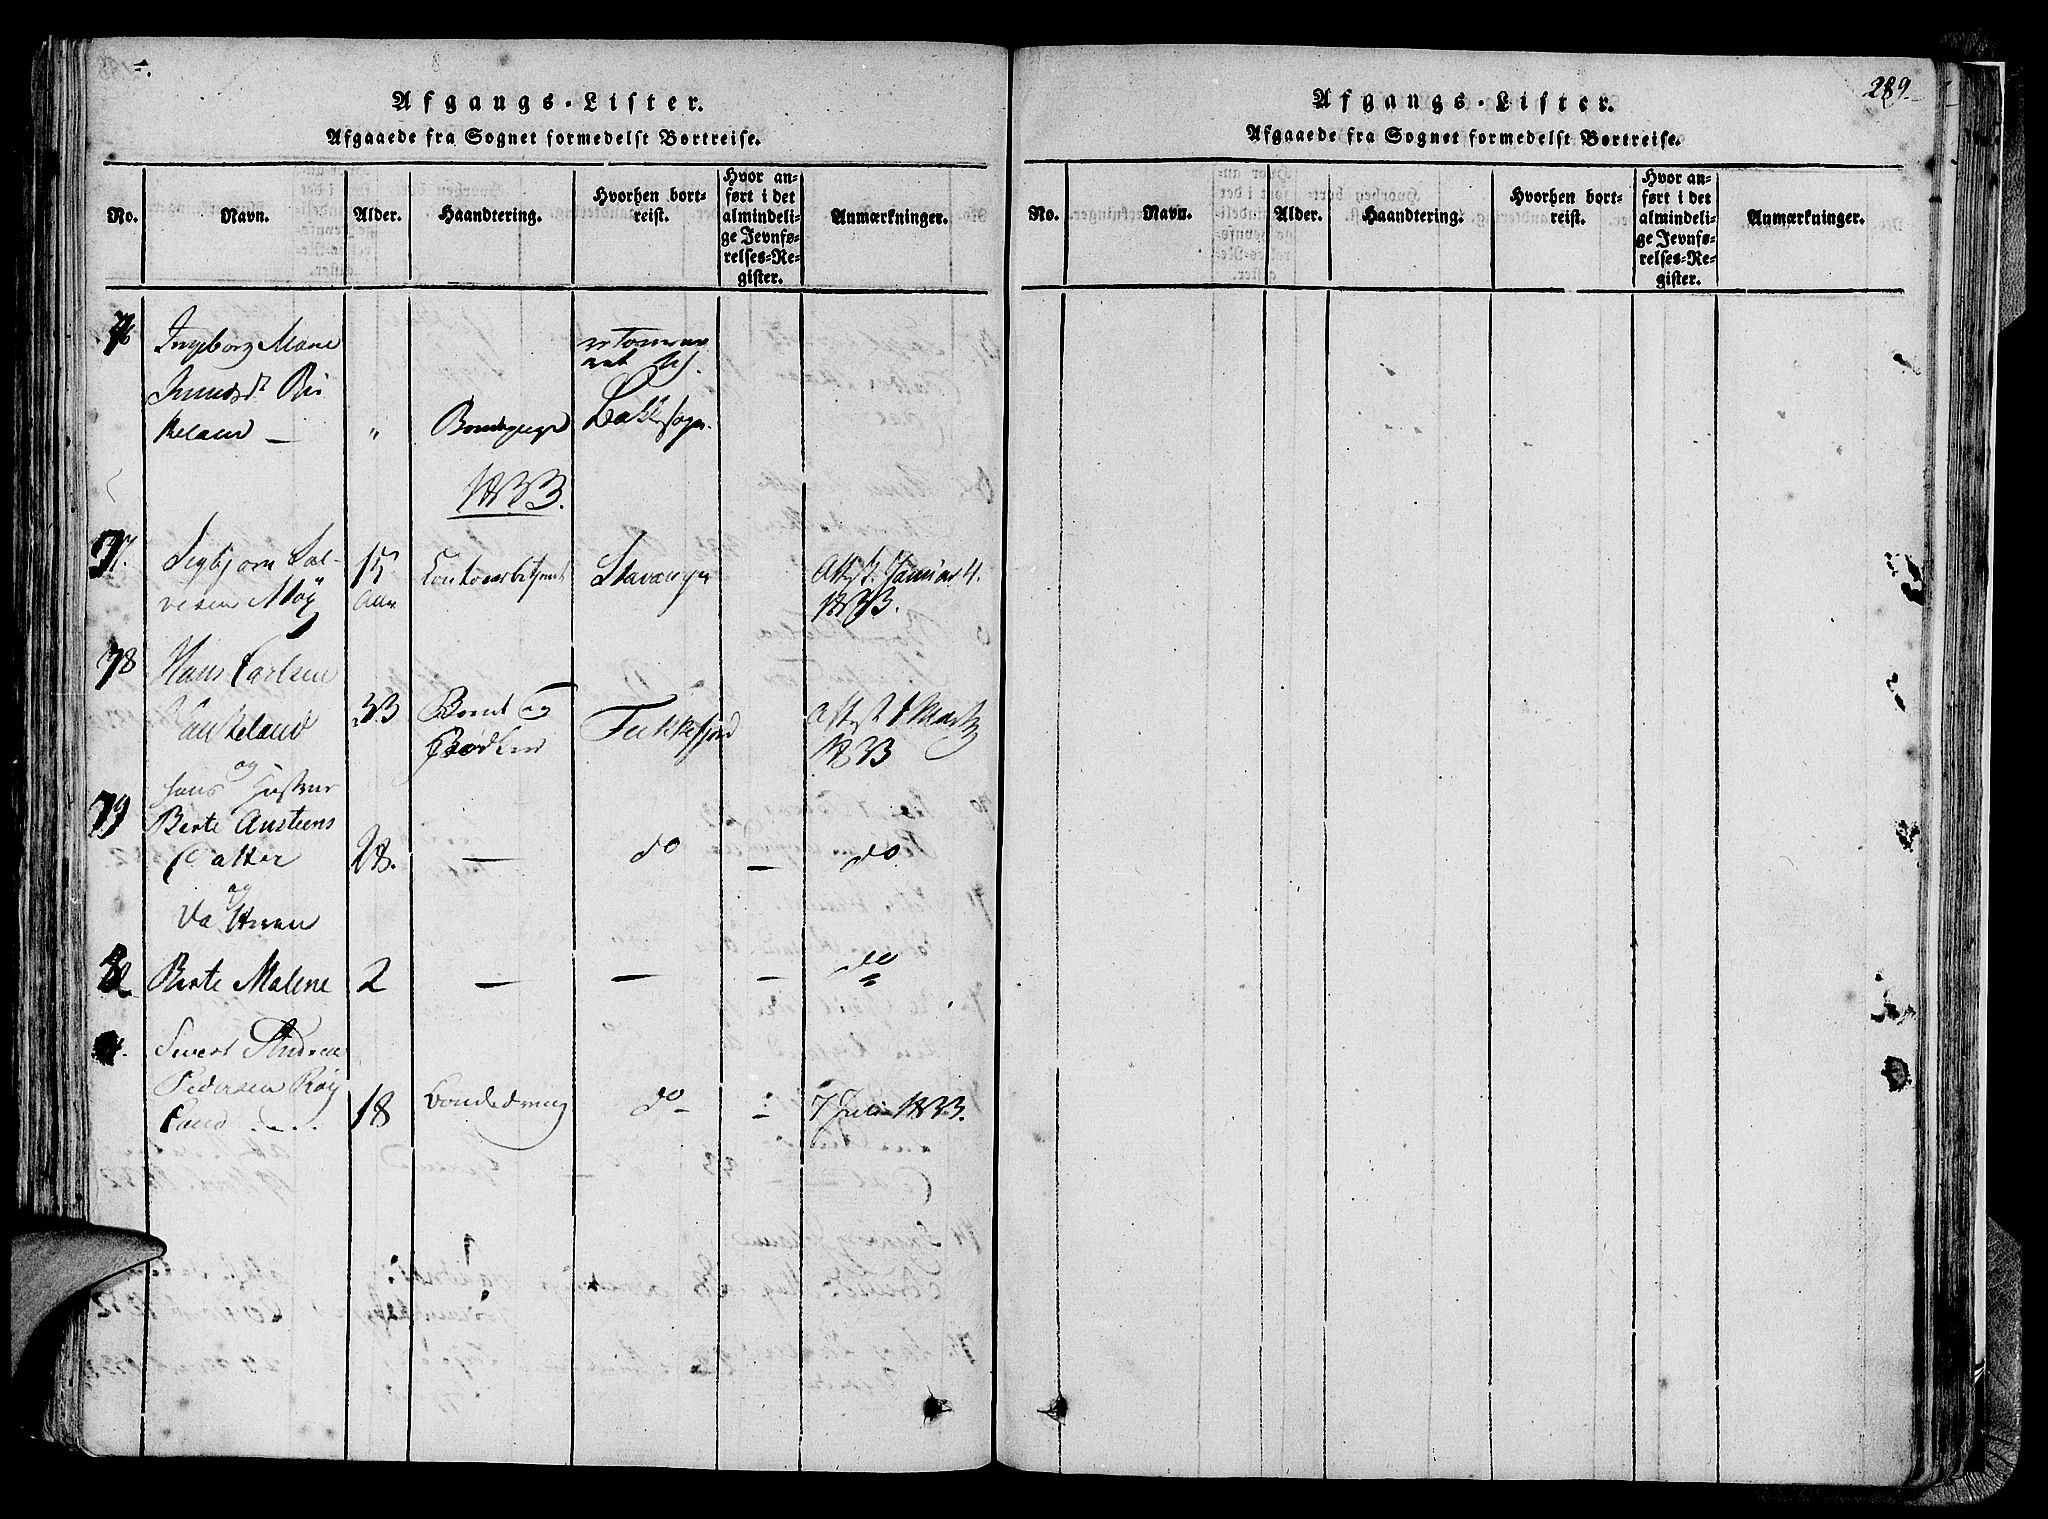 Afgangs-Lister.
Afgaaede fra Sognet formedelst Bortreise.
No. Navn. Alder. Haandtering. Hvorhen bortreist. Hvor anført i det almindelige Jevnførelses-Register. Anmærkninger.
76 Ingeborg Marie
Bi
keland — " Bondepige Bakke sogn.
1833.
77. Sigbjørn Sal-
vesen Moÿ 15 Aar Contoirbetjent Stavanger Attest. Januar 4.
1833.
78 Hans Carlsen
33 Bonde og Flekkefjord Attest 1 Martz
Bødker 1833
og
hans Hustrue
79 Berte Austeens
Datter 28. — do — do
og
Datteren
80 Berte Malene 2 — — — do
Sivert Andreas
Pedersen Røÿ
land 18 Bondedreng do 7 Juli 1833.
289
Afgangs-Lister.
Afgaaede fra Sognet formedelst Bortreise.
No. Navn. Alder. Haandtering. Hvorhen bortreist. Hvor anført i det almindelige Jevnførelses-Register. Anmærkninger.